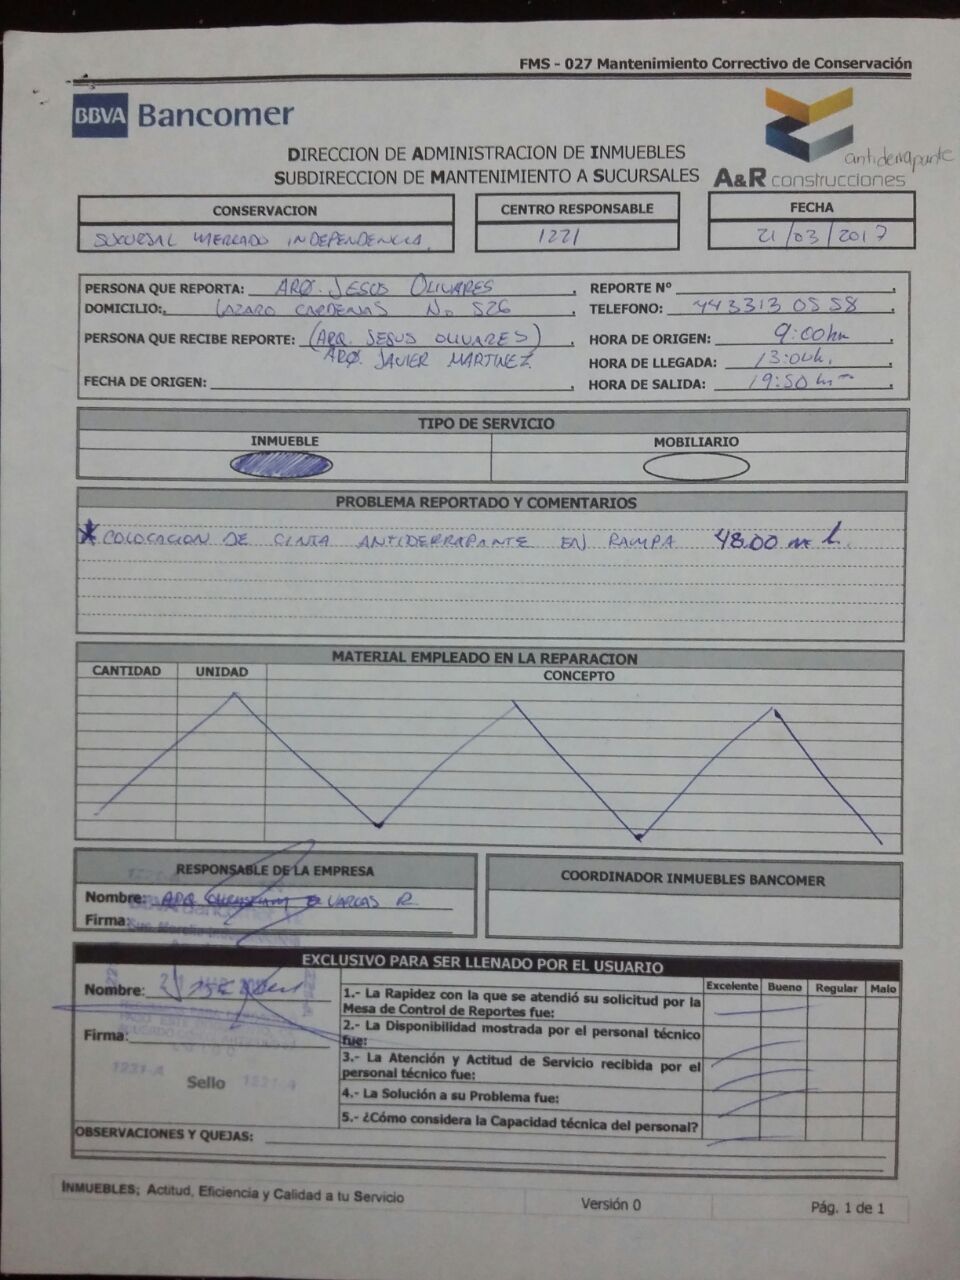 FMS - 027 Mantenimiento Correctivo de Conservación
BBVA Bancomer
antiderrapante
DIRECCION DE ADMINISTRACION DE INMUEBLES
SUBDIRECCION DE MANTENIMIENTO A SUCURSALES
A&R construcciones
CONSERVACION
SUCURSAL MERCADO INDEPENDENCIA.
CENTRO RESPONSABLE
1221
FECHA
21/03/2017
PERSONA QUE REPORTA: ARQ. JESUS OLIVARES
REPORTE Nº
DOMICILIO: LAZARO CARDENAS No 526
TELEFONO: 443313 0558
PERSONA QUE RECIBE REPORTE: (ARQ. JESUS OLIVARES)
ARQ. JAVIER MARTINEZ
HORA DE ORIGEN: 9:00hr
HORA DE LLEGADA: 13:00h.
FECHA DE ORIGEN:
HORA DE SALIDA: 19:50 hr
TIPO DE SERVICIO
INMUEBLE
MOBILIARIO
PROBLEMA REPORTADO Y COMENTARIOS
* COLOCACION DE CINTA ANTIDERRAPANTE EN RAMPA 48.00 m l.
MATERIAL EMPLEADO EN LA REPARACION
CANTIDAD UNIDAD CONCEPTO
RESPONSABLE DE LA EMPRESA
Nombre: ARQ VARGAS R.
Firma:
COORDINADOR INMUEBLES BANCOMER
BBVA Bancomer
EXCLUSIVO PARA SER LLENADO POR EL USUARIO
Excelente Bueno Regular Malo
Nombre:
Firma:
1.- La Rapidez con la que se atendió su solicitud por la
Mesa de Control de Reportes fue:
2.- La Disponibilidad mostrada por el personal técnico
fue:
3.- La Atención y Actitud de Servicio recibida por el
personal técnico fue:
4.- La Solución a su Problema fue:
5.- ¿Cómo considera la Capacidad técnica del personal?
1221-A 1221-A
Sello
OBSERVACIONES Y QUEJAS:
INMUEBLES; Actitud, Eficiencia y Calidad a tu Servicio
Versión 0
Pág. 1 de 1